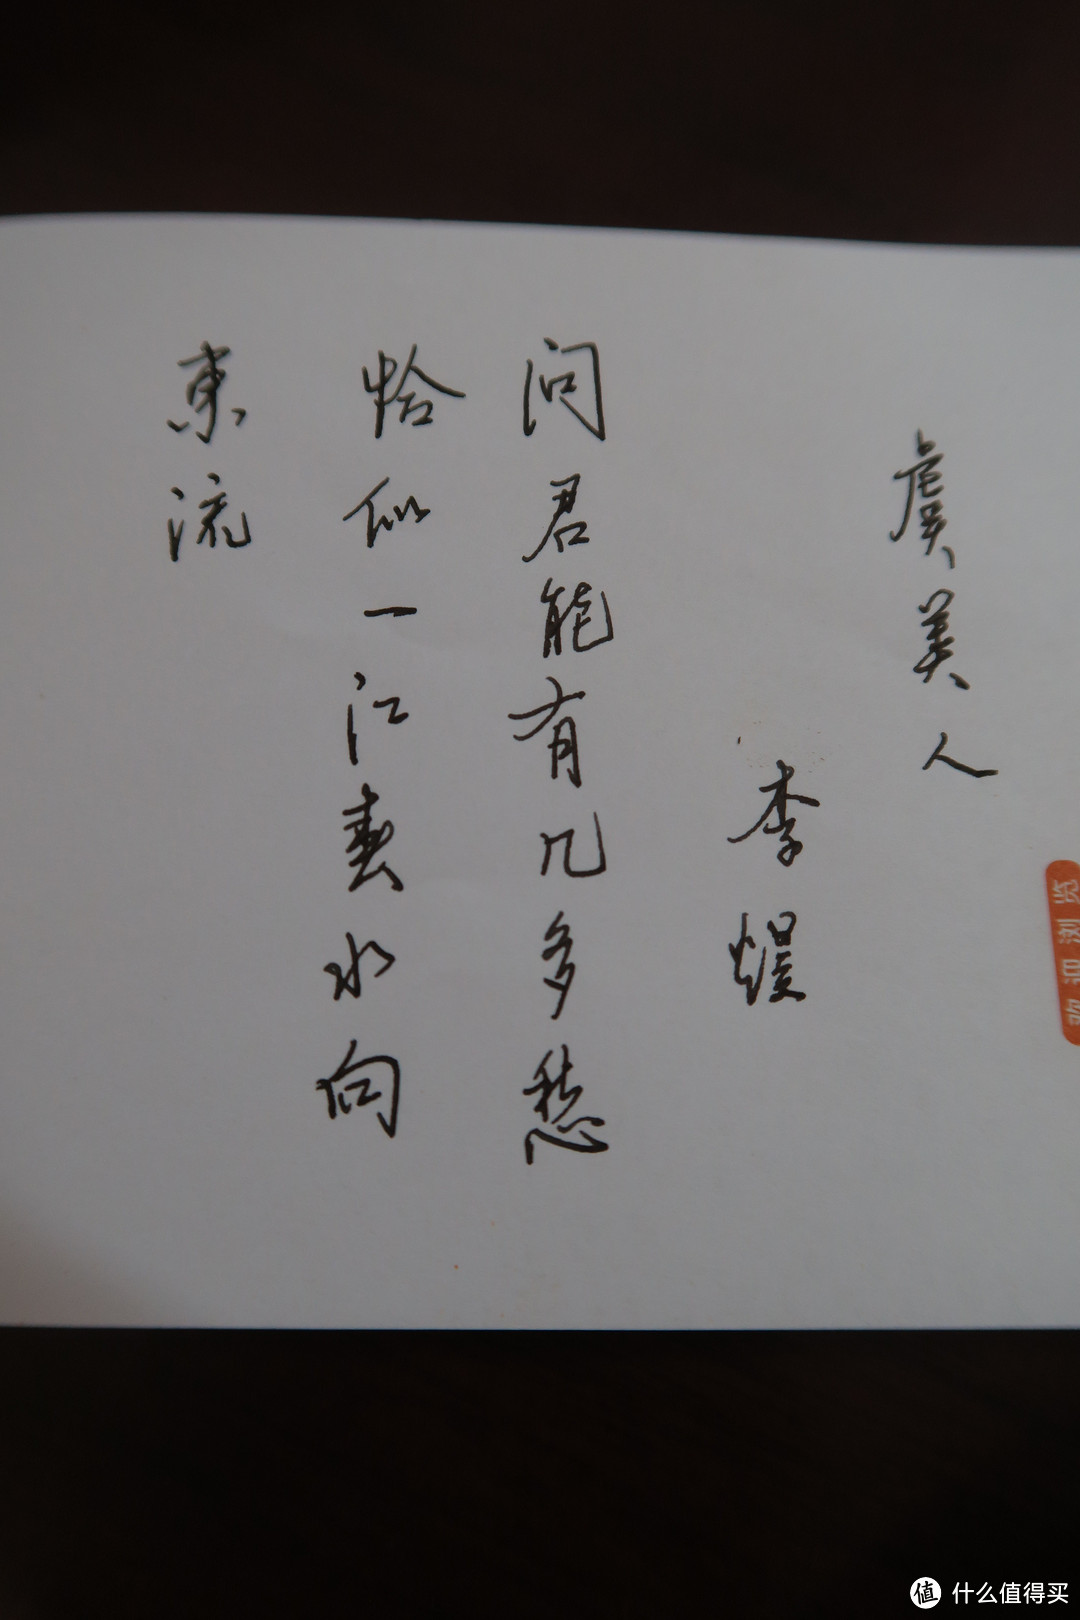 虞美人
李煜
问君能有几多愁
恰似一江春水向
東流
欢迎浏览
值 什么值得买